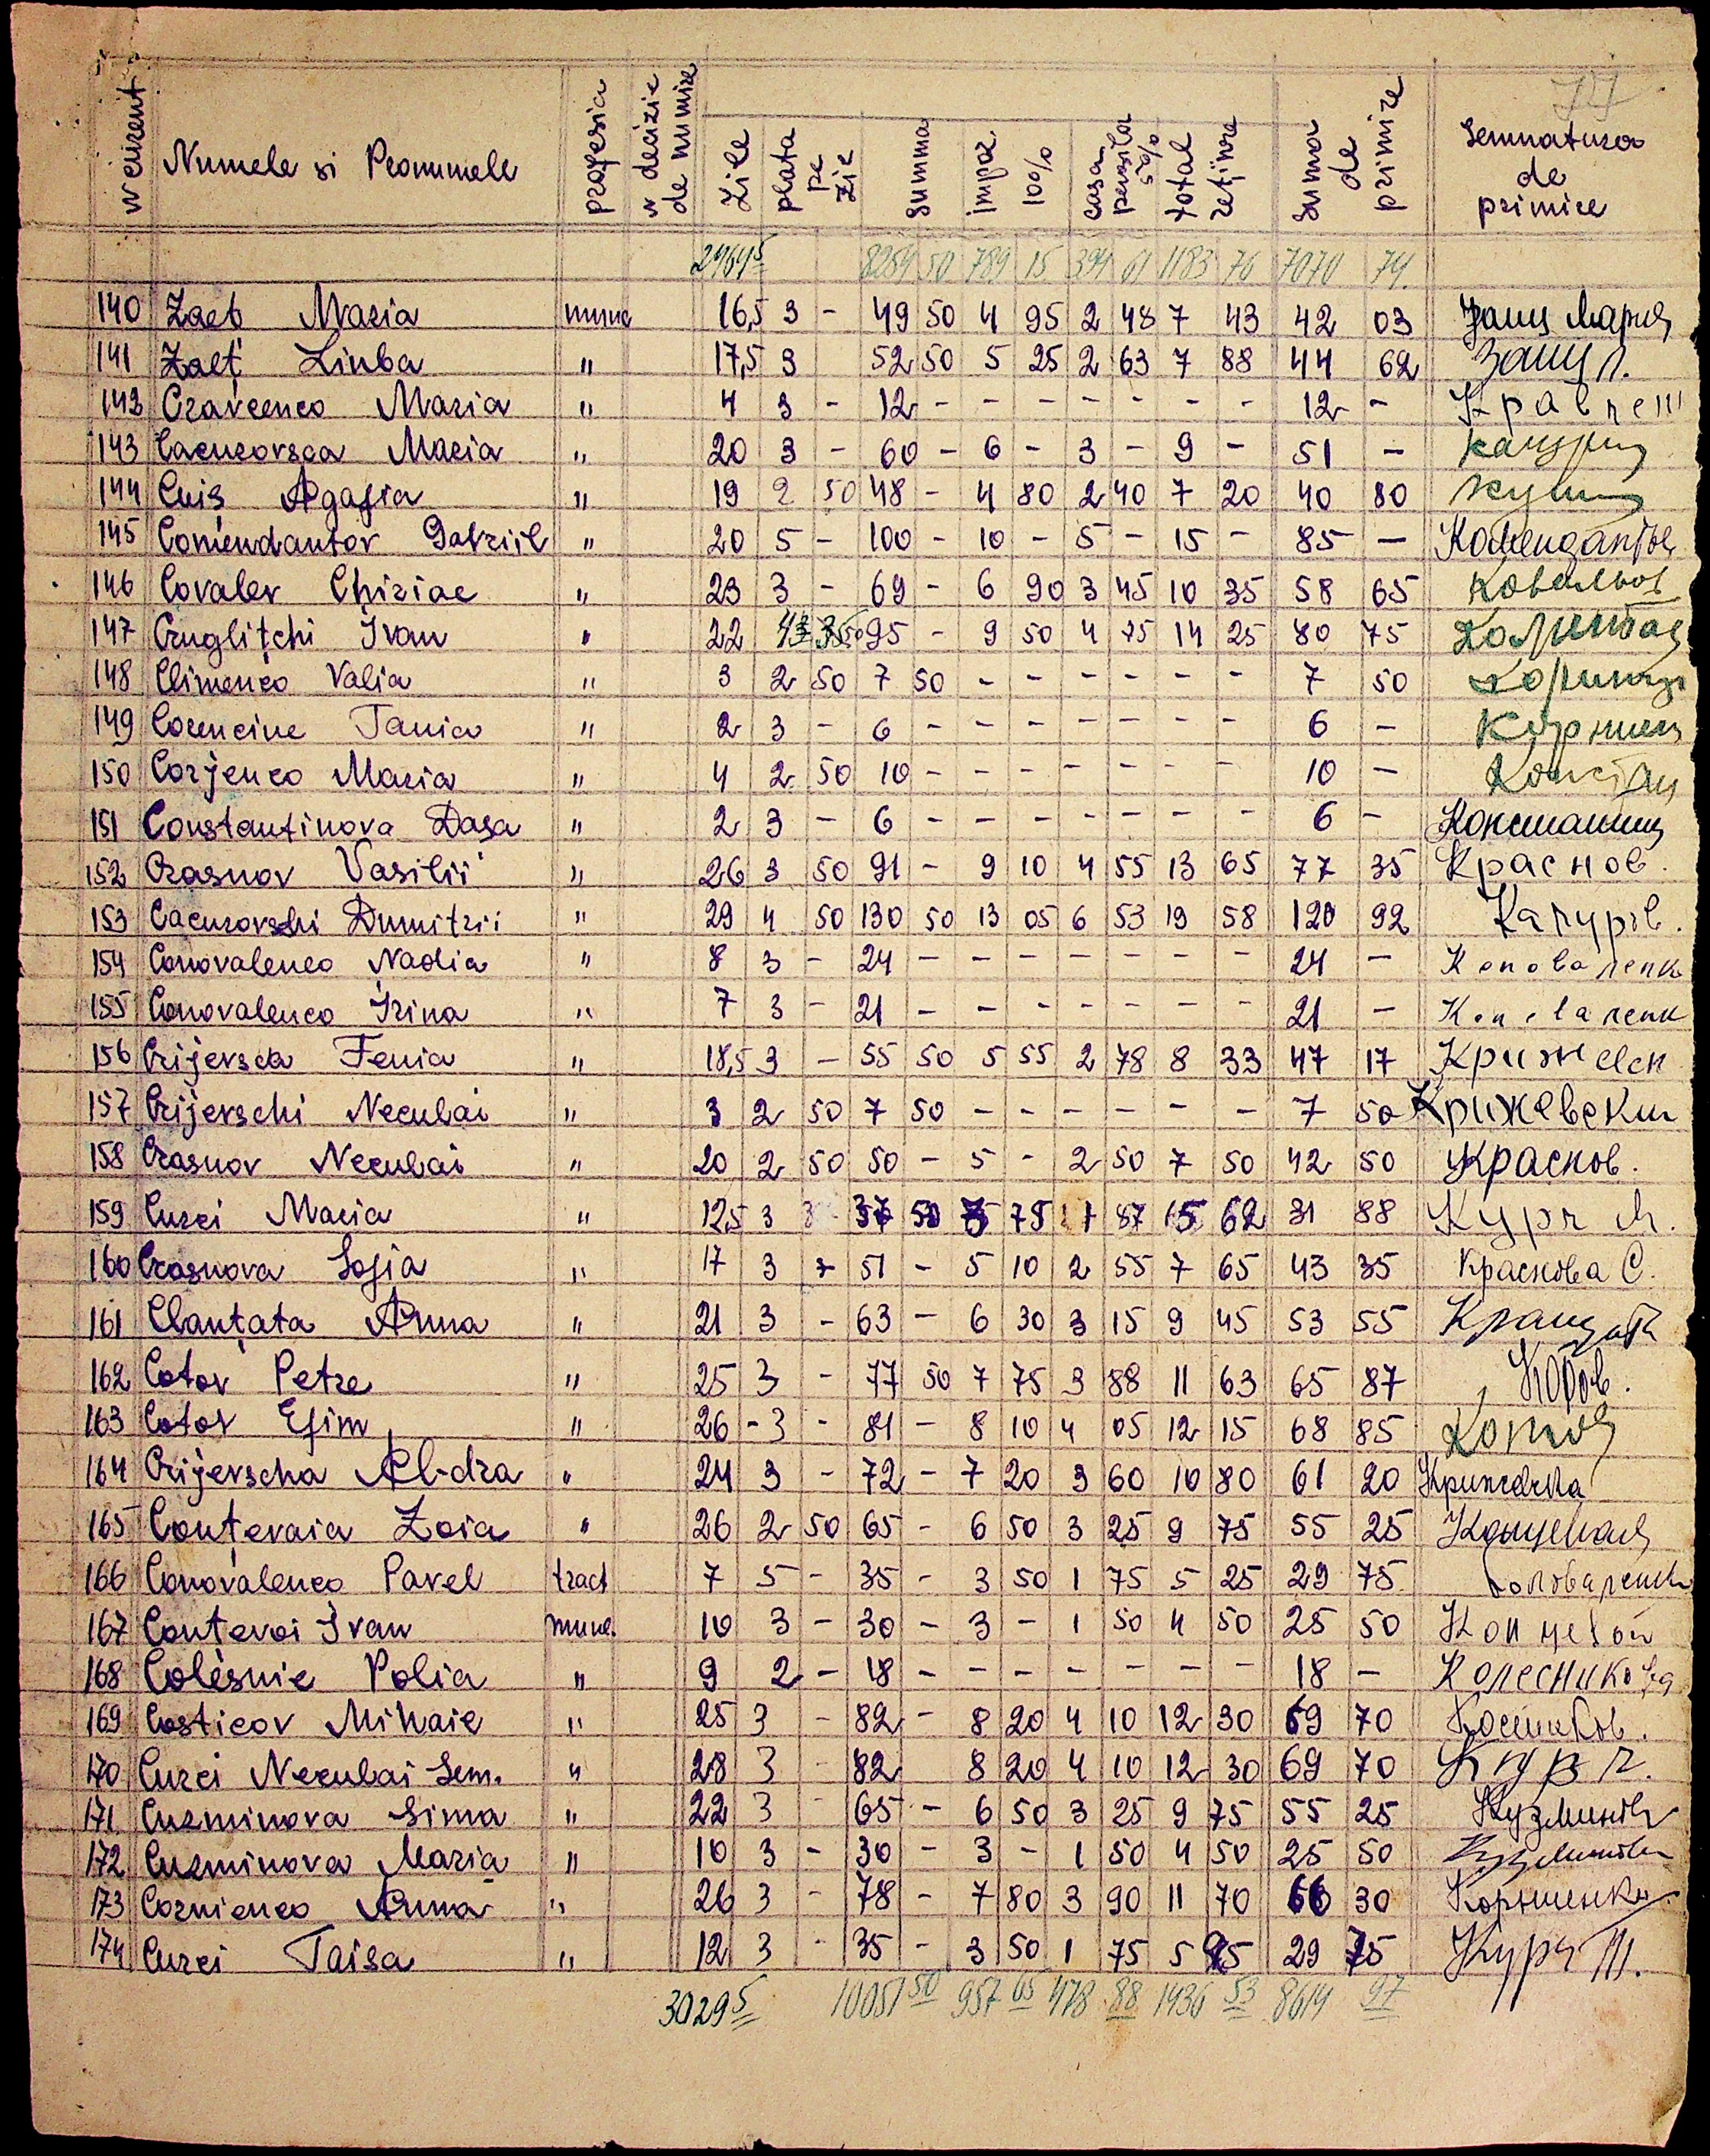 77
N curent Numele si Pronumele profesia N decizie de numire Zile plata pe zie summa impoz. 10% casa pensilor 5% total retinere suma de primire semnatura de primire
2464 5 8254 50 789 15 394 61 1183 76 7070 74
140 Zaeț Maria munc 16,5 3 - 49 50 4 95 2 48 7 43 42 03 Заиц Мария
141 Zaeț Liuba " 17,5 3 52 50 5 25 2 63 7 88 44 62 Заиц Л.
142 Cravcenco Maria " 4 3 - 12 - - - - - - - - 12 - Кравченш
143 Cacurovsca Maria " 20 3 - 60 - 6 - 3 - 9 - 51 -
144 Cuiș Agafia " 19 2 50 48 - 4 80 2 40 7 20 40 80
145 Comendantov Gavriil " 20 5 - 100 - 10 - 5 - 15 - 85 - Комендантов
146 Covalev Chiriac " 23 3 - 69 - 6 90 3 45 10 35 58 65 Ковальов
147 Cruglițchi Ivan " 22 95 - 9 50 4 75 14 25 80 75
148 Climenco Valia " 3 2 50 7 50 - - - - - - 7 50
149 Corencine Tania " 2 3 - 6 - - - - - - - - 6 -
150 Corjenco Maria " 4 2 50 10 - - - - - - - 10 -
151 Constantinova Dașa " 2 3 - 6 - - - - - - - - 6 -
152 Crasnov Vasilii " 26 3 50 91 - 9 10 4 55 13 65 77 35 Краснов.
153 Cacurovschi Dumitrii " 29 4 50 130 50 13 05 6 53 19 58 120 92
154 Conovalenco Nadia " 8 3 - 24 - - - - - - - - 24 - Коноваленк
155 Conovalenco Irina " 7 3 - 21 - - - - - - - - 21 -
156 Crijevsca Fenia " 18,5 3 - 55 50 5 55 2 78 8 33 47 17
157 Crijevschi Neculai " 3 2 50 7 50 - - - - - - 7 50 Крижевски
158 Crasnov Neculai " 20 2 50 50 - 5 - 2 50 7 50 42 50 Краснов.
159 Curci Maria " 12,5 3 37 50 3 75 1 87 5 62 31 88 Курч М.
160 Crasnova Sofia " 17 3 - 51 - 5 10 2 55 7 65 43 35 Краснова С.
161 Clanțata Anna " 21 3 - 63 - 6 30 3 15 9 45 53 55
162 Cotov Petre " 25 3 - 77 50 7 75 3 88 11 63 65 87
163 Cotov Efim " 26 - 3 - 81 - 8 10 4 05 12 15 68 85 Котов
164 Crijevscha Al-dra " 24 3 - 72 - 7 20 3 60 10 80 61 20
165 Conțevaia Zoia " 26 2 50 65 - 6 50 3 25 9 75 55 25
166 Conovalenco Pavel tract 7 5 - 35 - 3 50 1 75 5 25 29 75
167 Contevoi Ivan munc. 10 3 - 30 - 3 - 1 50 4 50 25 50 Концевой
168 Colesnic Polia " 9 2 - 18 - - - - - - - - 18 - Колесникова
169 Costicov Mihaie " 25 3 - 82 - 8 20 4 10 12 30 69 70
170 Curci Neculai Sem. " 28 3 - 82 8 20 4 10 12 30 69 70 Курч.
171 Cuzminova Sima " 22 3 - 65 - 6 50 3 25 9 75 55 25
172 Cuzminova Maria " 10 3 - 30 - 3 - 1 50 4 50 25 50
173 Cornienco Anna " 26 3 - 78 - 7 80 3 90 11 70 66 30
174 Curci Taisa " 12 3 - 35 - 3 50 1 75 5 25 29 75 Курч Т.
3029 5 10051 50 957 65 478 88 1436 53 8614 97